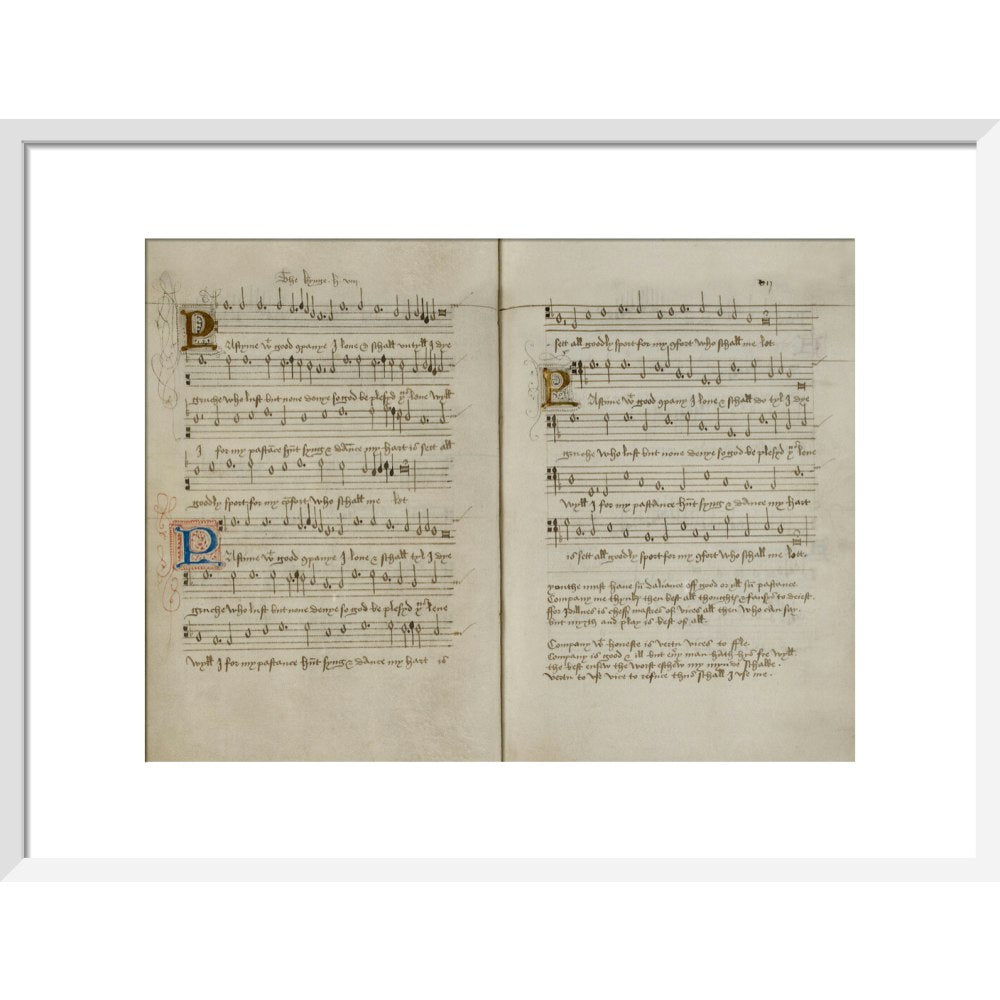 The kynge h viii
Pastyme wt good companye I love & schall untyll I dye
gruche who lust but none denye so god be plesyd ys leve wyll
I for my pastance hūt syng & dance my hart is sett all
goodly sport for my comfort who schall me lett
Pastyme wt good companye I love & schall tyl I dye
gruche who lust but none denye so god be plesyd ys leve
wyll I for my pastance hūt syng & dance my hart is
sett all goodly sport for my comfort who schall me let
Pastime wt good companye I love & schall do tyl I dye
gruche who lust but none denye so god be plesyd ys leve
wyll I for my pastance hūt syng & dance my hart
is sett all goodly sport for my comfort who schall me lett.
youthe must have sū daliance off good or yll sū pastance.
Company me thynks then best all thoughts & fansys to deiest.
ffor Idillnes is cheff mastres of vices all then who can say.
but myrth and play is best of all.
Company wt honeste is vertu vices to ffle.
Company is good & ill but evy man hath hys fre wyll.
the best ensew the worst eschew my mynde schalbe.
vertu to use vice to refuce thus schall I use me.